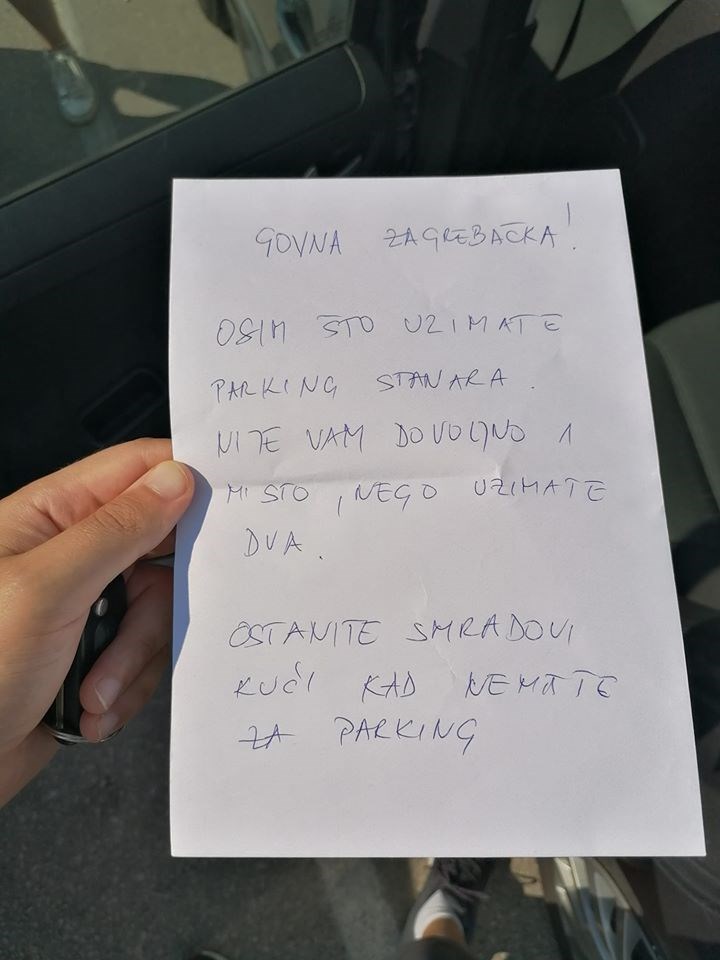 GOVNA ZAGREBAČKA!
OSIM ŠTO UZIMATE
PARKING STANARA.
NIJE VAM DOVOLJNO 1
MISTO, NEGO UZIMATE
DVA.
OSTANITE SMRADOVI
KUĆI KAD NEMATE
ZA PARKING